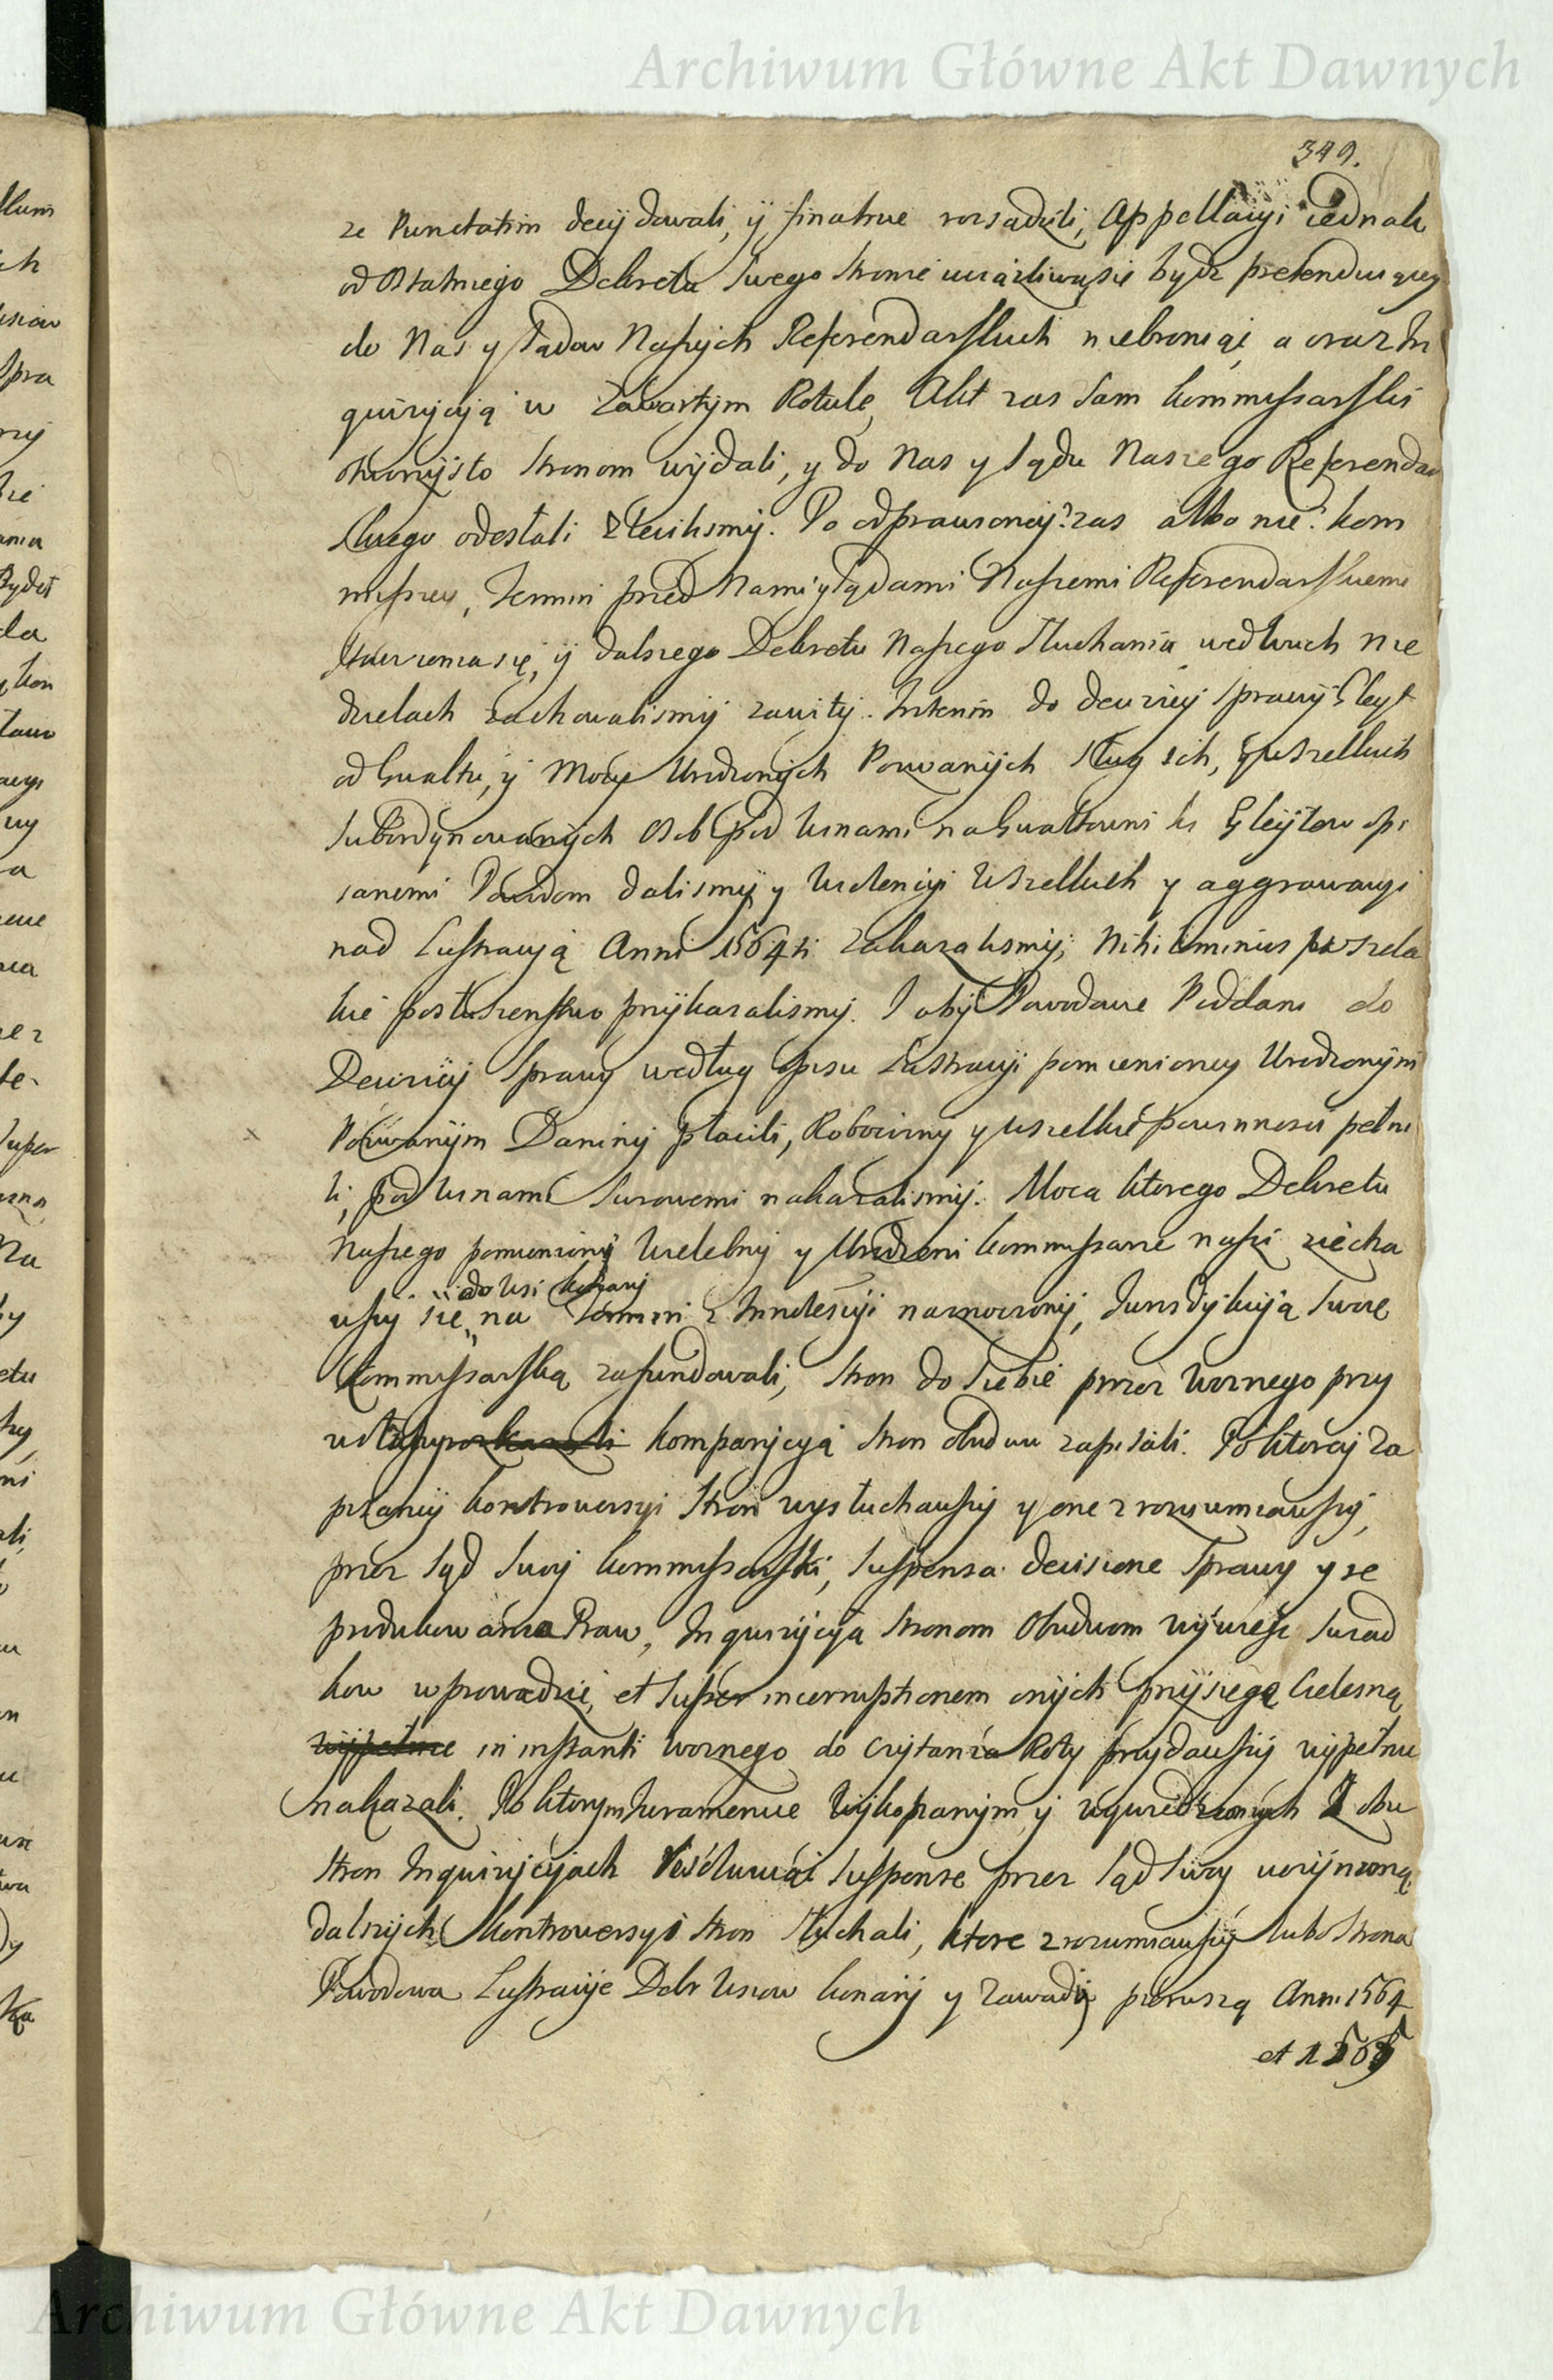 Archiwum Główne Akt Dawnych
349.
ze Punctatim decydowali, y finalnie rozsądzili, Appellacyi iednak
od Ostatniego Dekretu Swego Stronie uciążliwą się bydz pretenduiącey
do Nas y Sądow Naszych Referendarskich niebroniąc, a oraz In
quizycyją w Zawartym Rotule, Akt zas Sam Kommissarski
otworzysto Stronom wydali, y do Nas y Sądu Naszego Referendar
skiego odesłali Zlecilismy. Po odprawioney? zas albo nie: Kom
missyey, Termin przed Nami y Sądami Naszemi Referendarskiemi
Stawienia się, y dalszego Dekretu Naszego Słuchania we dwuch Nie
dzielach zachowalismy zawity. Interim do decyzyi Sprawy Gleyt
od Gwałtu, y Mocy Urodzonych Pozwanych Sług ich, y wszelkich
Subordynowanych Osob pod winami na Gwałtowni ki Gleytow opi
sanemi Powodom dalismy y Wiolencyi Wszelkich y aggrawacyi
nad Lustracyją Anni 1564ti zakazalismy; Nihilominus wszela
kie posłuszenstwo przykazalismy. I aby Powodowie Poddani do
Decyzyi Sprawy według opisu Lustracyi pomienioney Urodzonym
Pozwanym Daniny płacili, Robocizny y wszelkie powinnosci pełni
li, pod winami Surowemi nakazalismy. Moca ktorego Dekretu
Naszego pomienieni Wielebny y Urodzeni Kommissarze nasi ziecha
wszy się do Wsi na Termin z Innotescyi naznaczony, Jurysdykcyją Swoię
Kommissarską zafundowali, Stron do Siebie przez Woznego przy
wołanych Kompanycyą Stron obudwu zapisali. Po ktorey Za
pisaney Kontrowersyi Stron wysłuchawszy y one zrozumiawszy,
przez Sąd Swoy Kommissarski, Suspensa decisione Sprawy y re
produkowania Praw, Inquizycyą Stronom Obudwom wywiesc Swiad
kow wprowadzic, et super incorruptionem onych przysięgę Cielesną
wypełnic in instanti Woznego do czytania Roty przydawszy wypełnic
nakazali. Po ktorym Juramencie Wykonanym y wywiedzionych Z obu
Stron Inquizycyjach Resolwuiąc Suspense przez Sąd Swoy uczynioną
dalszych Kontrowersyi Stron Słuchali, ktore zrozumiawszy lubo Strona
Powodowa Lustracyje Dobr Wsiow Konary y Zawady pierwszą Anni 1564
et 1565
Archiwum Główne Akt Dawnych